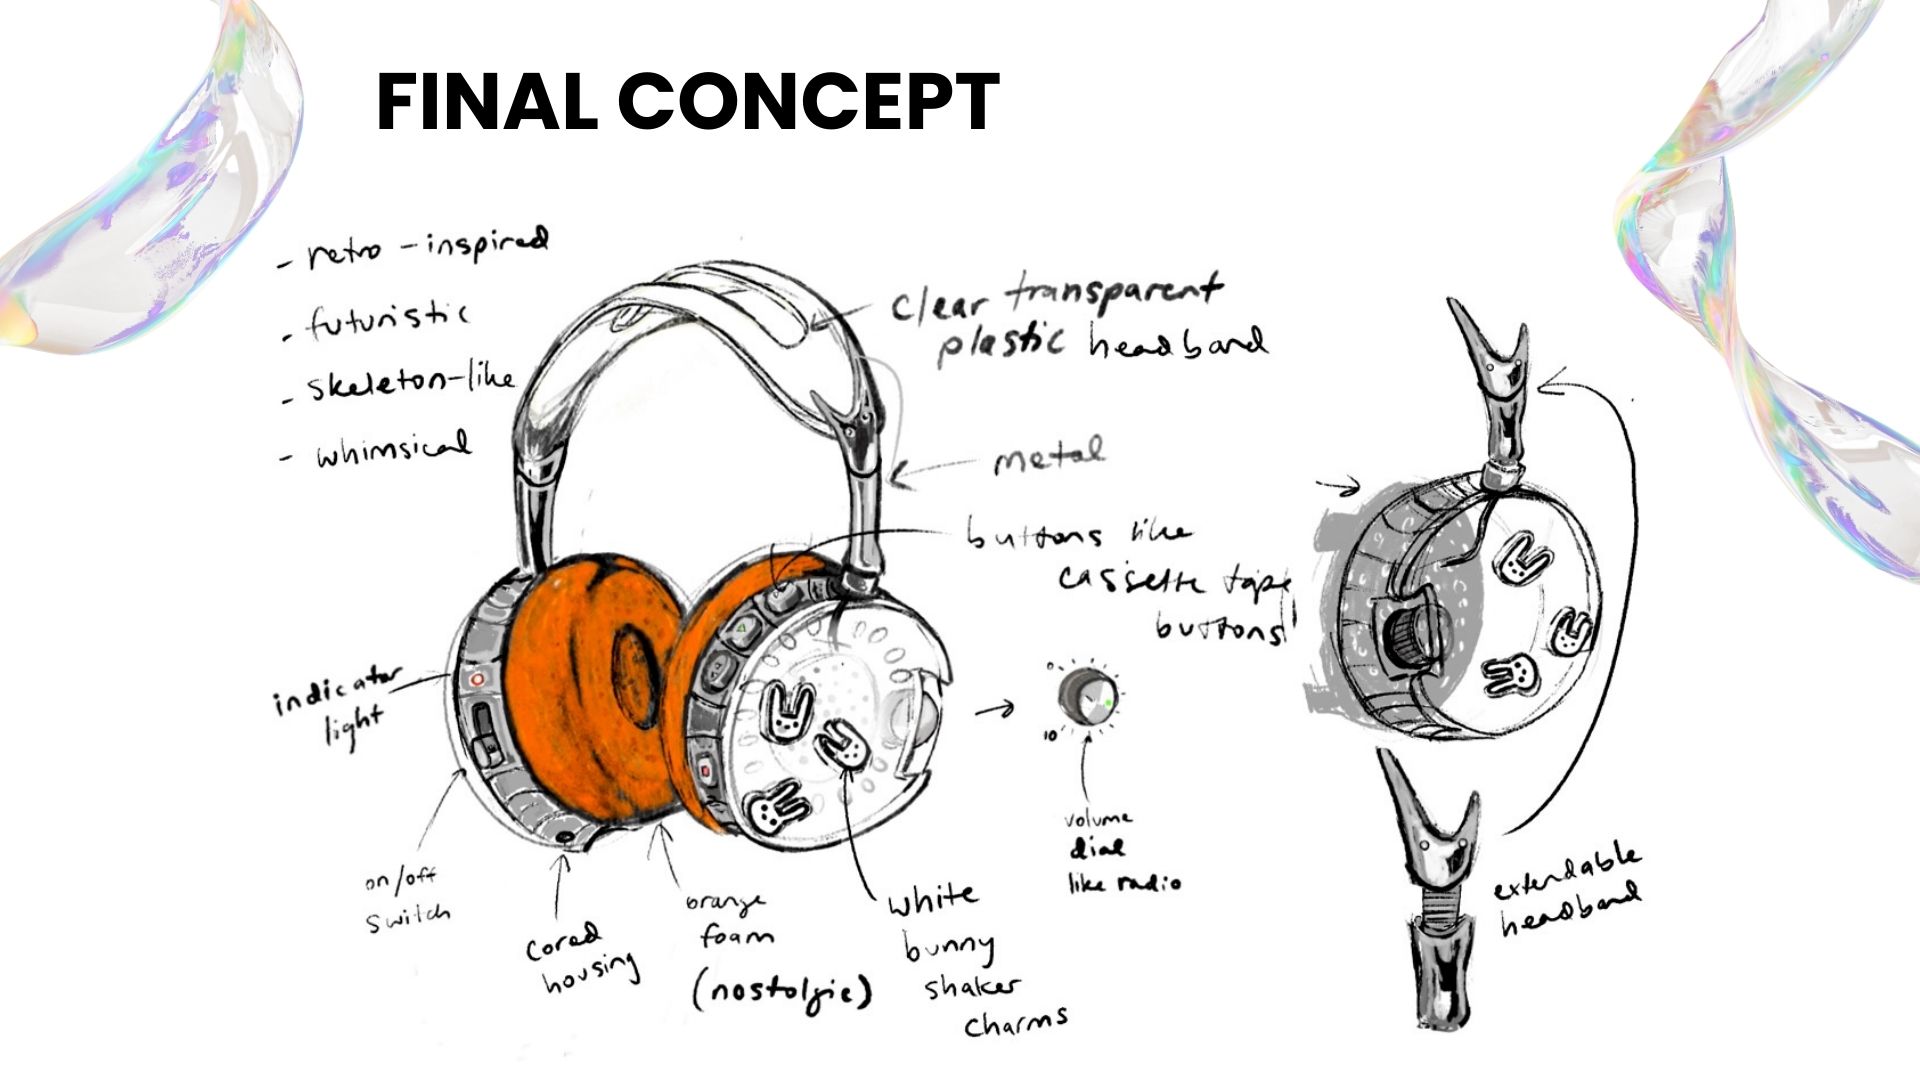 FINAL CONCEPT
- retro - inspired
- futuristic
- skeleton-like
- whimsical
clear transparent
plastic headband
metal
buttons like
cassette tape
buttons
indicator
light
on/off
switch
cored
housing
orange
foam
(nostalgic)
white
bunny
shaker
charms
0
10
volume
dial
like radio
extendable
headband